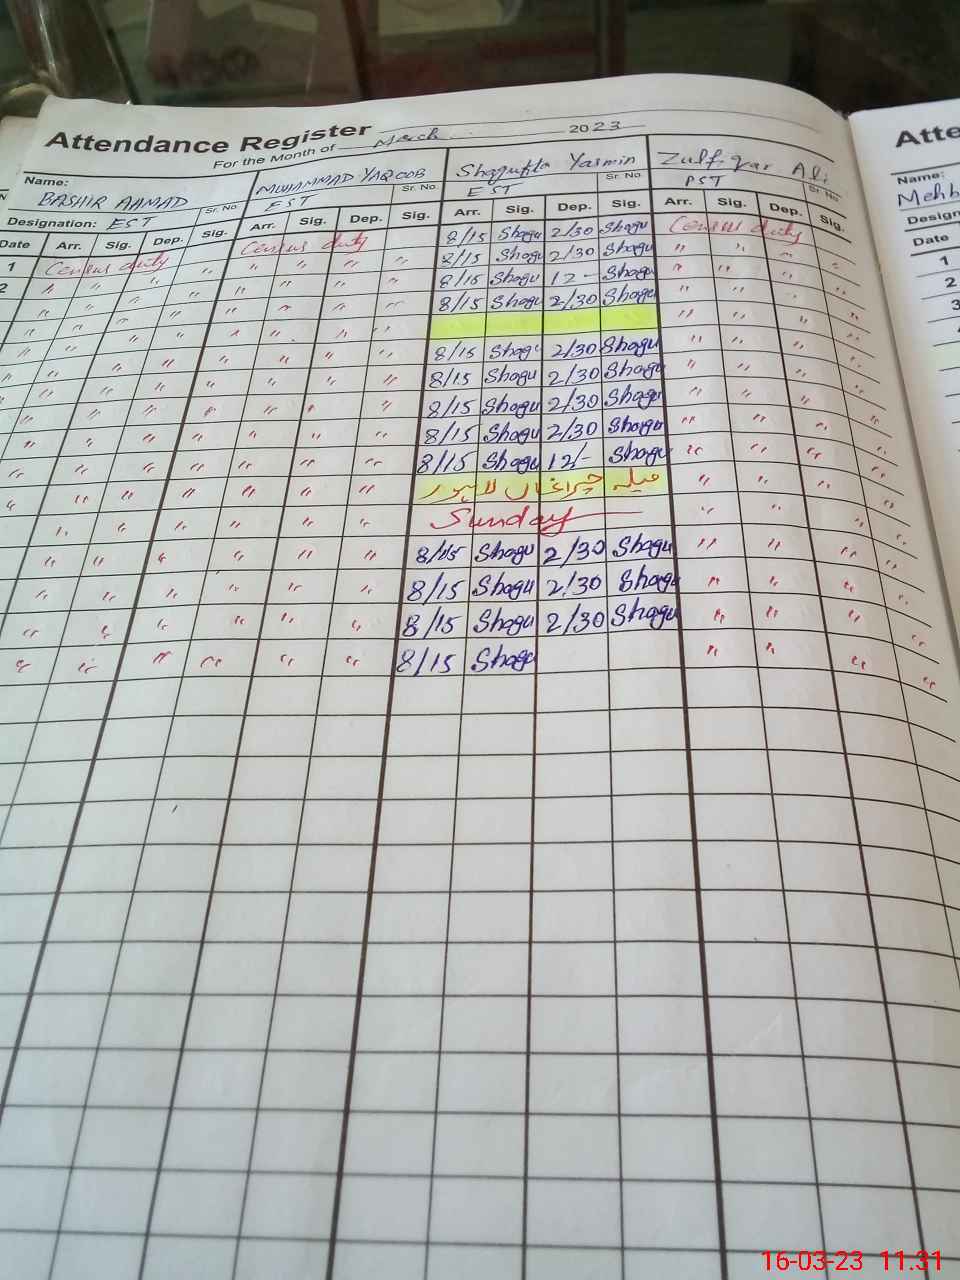 Attendance Register
For the Month of March 2023
Name: BASHIR AHMAD Sr. No. MUHAMMAD YAQOOB Sr. No. Shagufta Yasmin Sr. No. Zulfiqar Ali Sr. No.
Designation: EST EST EST PST
Date Arr. Sig. Dep. Sig. Arr. Sig. Dep. Sig. Arr. Sig. Dep. Sig. Arr. Sig. Dep. Sig.
1 Census duty Census duty 8/15 Shagu 2/30 Shagu Census duty
2 " " " " " " " " 8/15 Shagu 2/30 Shagu " " " "
" " " " " " " " 8/15 Shagu 12 - Shagu " " " "
" " " " " " " " 8/15 Shagu 2/30 Shagu " " " "
" " " " " " " " " " " "
" " " " " " " " 8/15 Shagu 2/30 Shagu " " " "
" " " " " " " " 8/15 Shagu 2/30 Shagu " " " "
" " " " " " " " 8/15 Shagu 2/30 Shagu " " " "
" " " " " " " " 8/15 Shagu 2/30 Shagu " " " "
" " " " " " " " 8/15 Shagu 12/- Shagu " " " "
" " " " " " میلہ چراغاں لاہور " " " "
" " " " " " Sunday " " " "
" " " " " " 8/15 Shagu 2/30 Shagu " " " "
" " " " " " 8/15 Shagu 2/30 Shagu " " " "
" " " " " " 8/15 Shagu 2/30 Shagu " " " "
" " " " " " 8/15 Shagu " " " "
Atte
Name:
Mehb
Design
Date
1
2
3
16-03-23 11.31